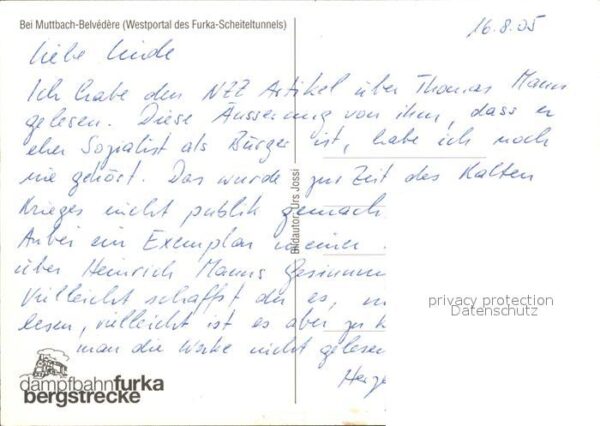 Bei Muttbach-Belvédère (Westportal des Furka-Scheiteltunnels)
16.8.05
Liebe Linde
Ich habe den NZZ Artikel über Thomas Mann
gelesen. Diese Äusserung von ihm, dass er
eher Sozialist als Bürger ist, habe ich noch
nie gehört. Das wurde zur Zeit des Kalten
Krieges nicht publik gemach
Anbei ein Exemplar meiner
über Heinrich Manns Gesinnun
Vielleicht schaffst du es,
lesen, vielleicht ist es aber zu
man die Werke nicht gelesen
Herz
Bildautor: Urs Jossi
privacy protection
Datenschutz
dampfbahnfurka
bergstrecke